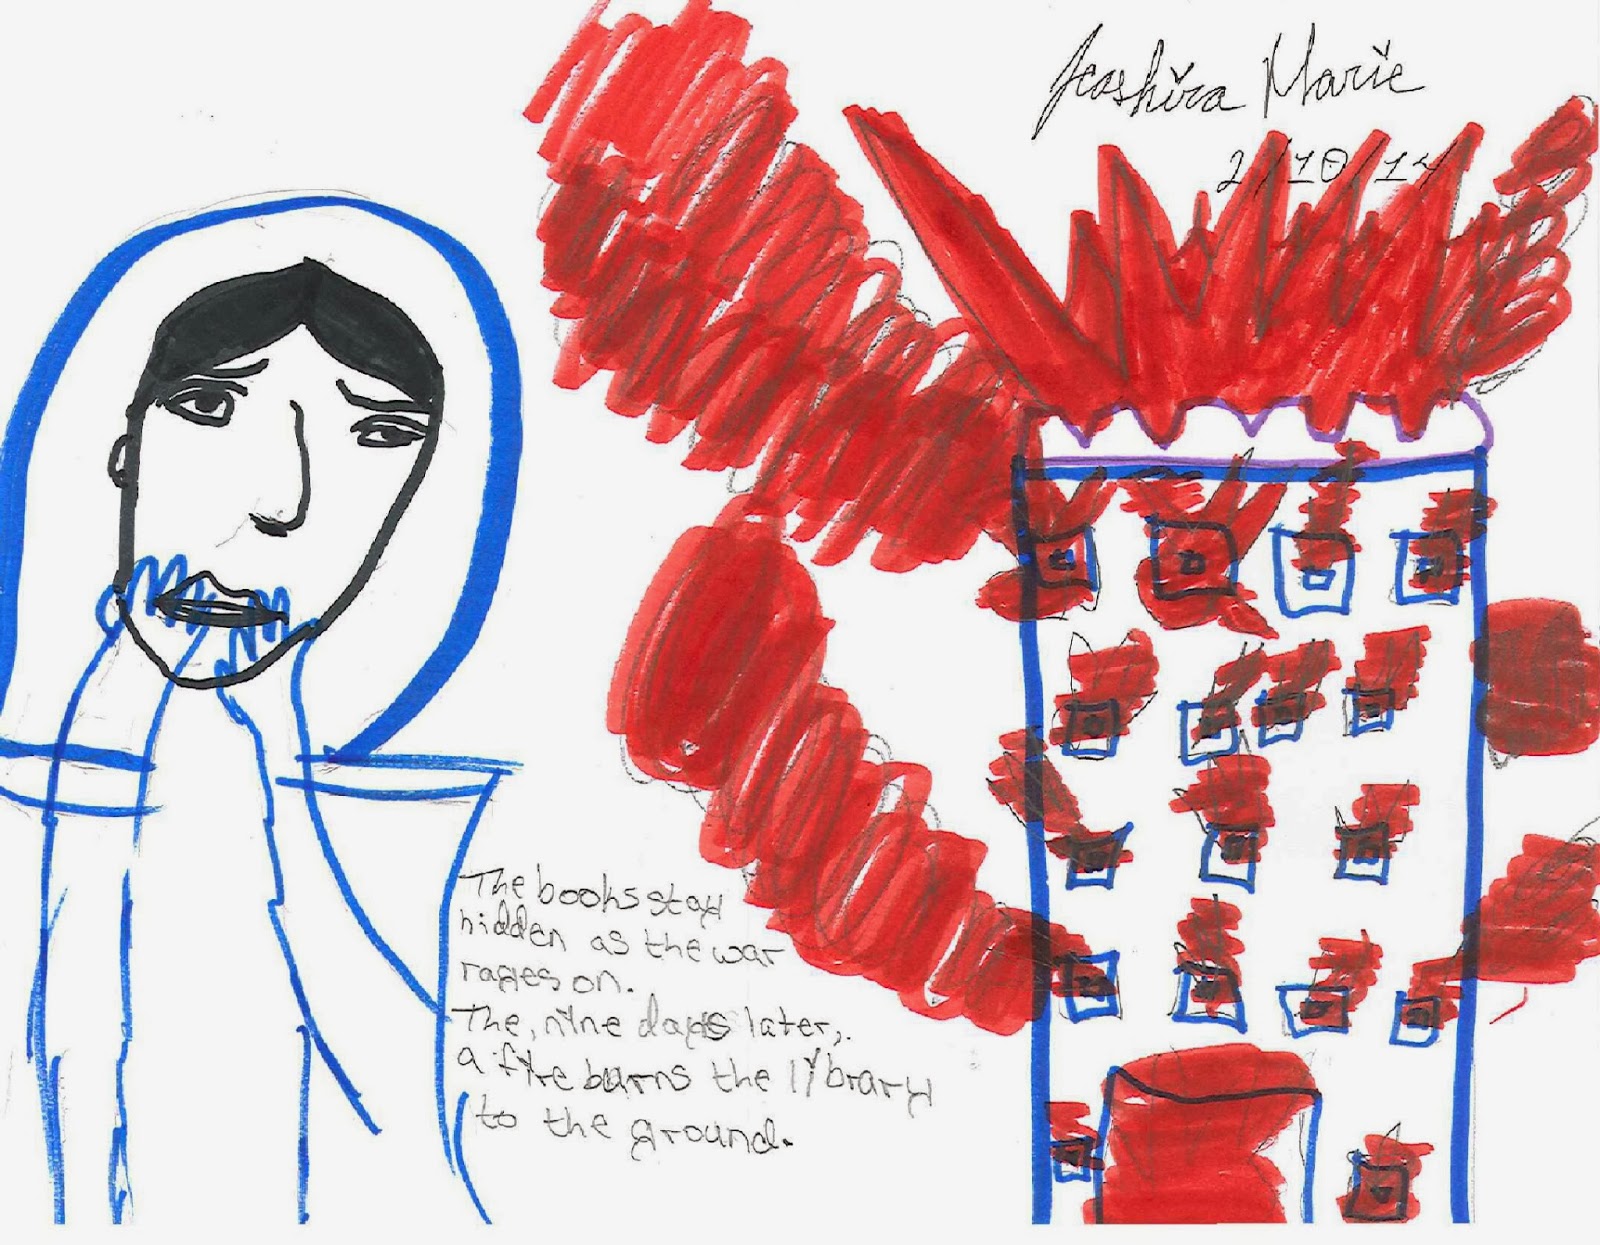 Jeashira Marie
2/10/14
The books stay
hidden as the war
rages on.
The, nine days later,
a fire burns the library
to the ground.